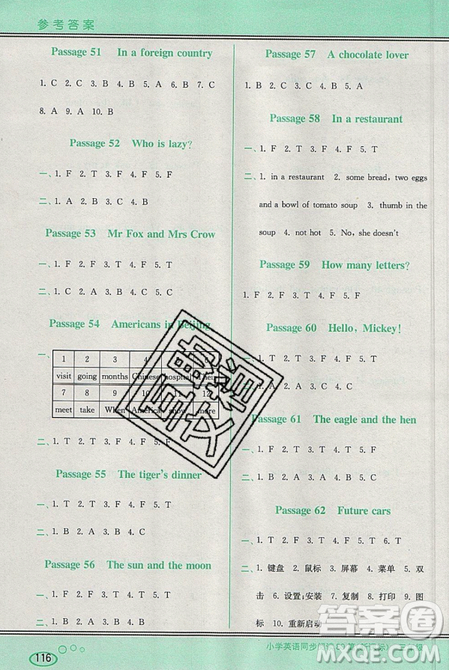 参考答案
Passage 51 In a foreign country
1. C 2. C 3. B 4. B 5. A 6. C 7. B
8. A 9. A 10. B
Passage 52 Who is lazy?
一、1. F 2. T 3. F 4. T 5. F
二、1. A 2. A 3. B 4. A
Passage 53 Mr Fox and Mrs Crow
一、1. F 2. F 3. T 4. F 5. T
二、1. C 2. A 3. B 4. A
Passage 54 Americans in Beijing
一、
1 2 3 4
visit going months Chinese hospital
7 8 9 10 11 12
meet take When American more
二、1. T 2. T 3. F 4. F 5. F
Passage 55 The tiger's dinner
一、1. T 2. F 3. F 4. F 5. T
二、1. B 2. A 3. B 4. C
Passage 56 The sun and the moon
一、1. F 2. T 3. T 4. F 5. T
二、1. B 2. A 3. B 4. A 5. C
116
Passage 57 A chocolate lover
1. B 2. C 3. C 4. A 5. B
Passage 58 In a restaurant
一、1. F 2. T 3. T 4. F 5. F
二、1. in a restaurant 2. some bread, two eggs
and a bowl of tomato soup 3. thumb in the
soup 4. not hot 5. No, she doesn't
Passage 59 How many letters?
1. F 2. F 3. T 4. F 5. T
Passage 60 Hello, Mickey!
一、1. F 2. T 3. F 4. T 5. F
Passage 61 The eagle and the hen
一、1. T 2. F 3. T 4. F 5. F
二、1. B 2. C 3. B 4. A
Passage 62 Future cars
一、1. T 2. F 3. F 4. T 5. T
二、1. 键盘 2. 鼠标 3. 屏幕 4. 菜单 5. 双
击 6. 安装 7. 复制 8. 打印 9. 图
标 10. 重新启动
小学英语同步
MMKK.COM